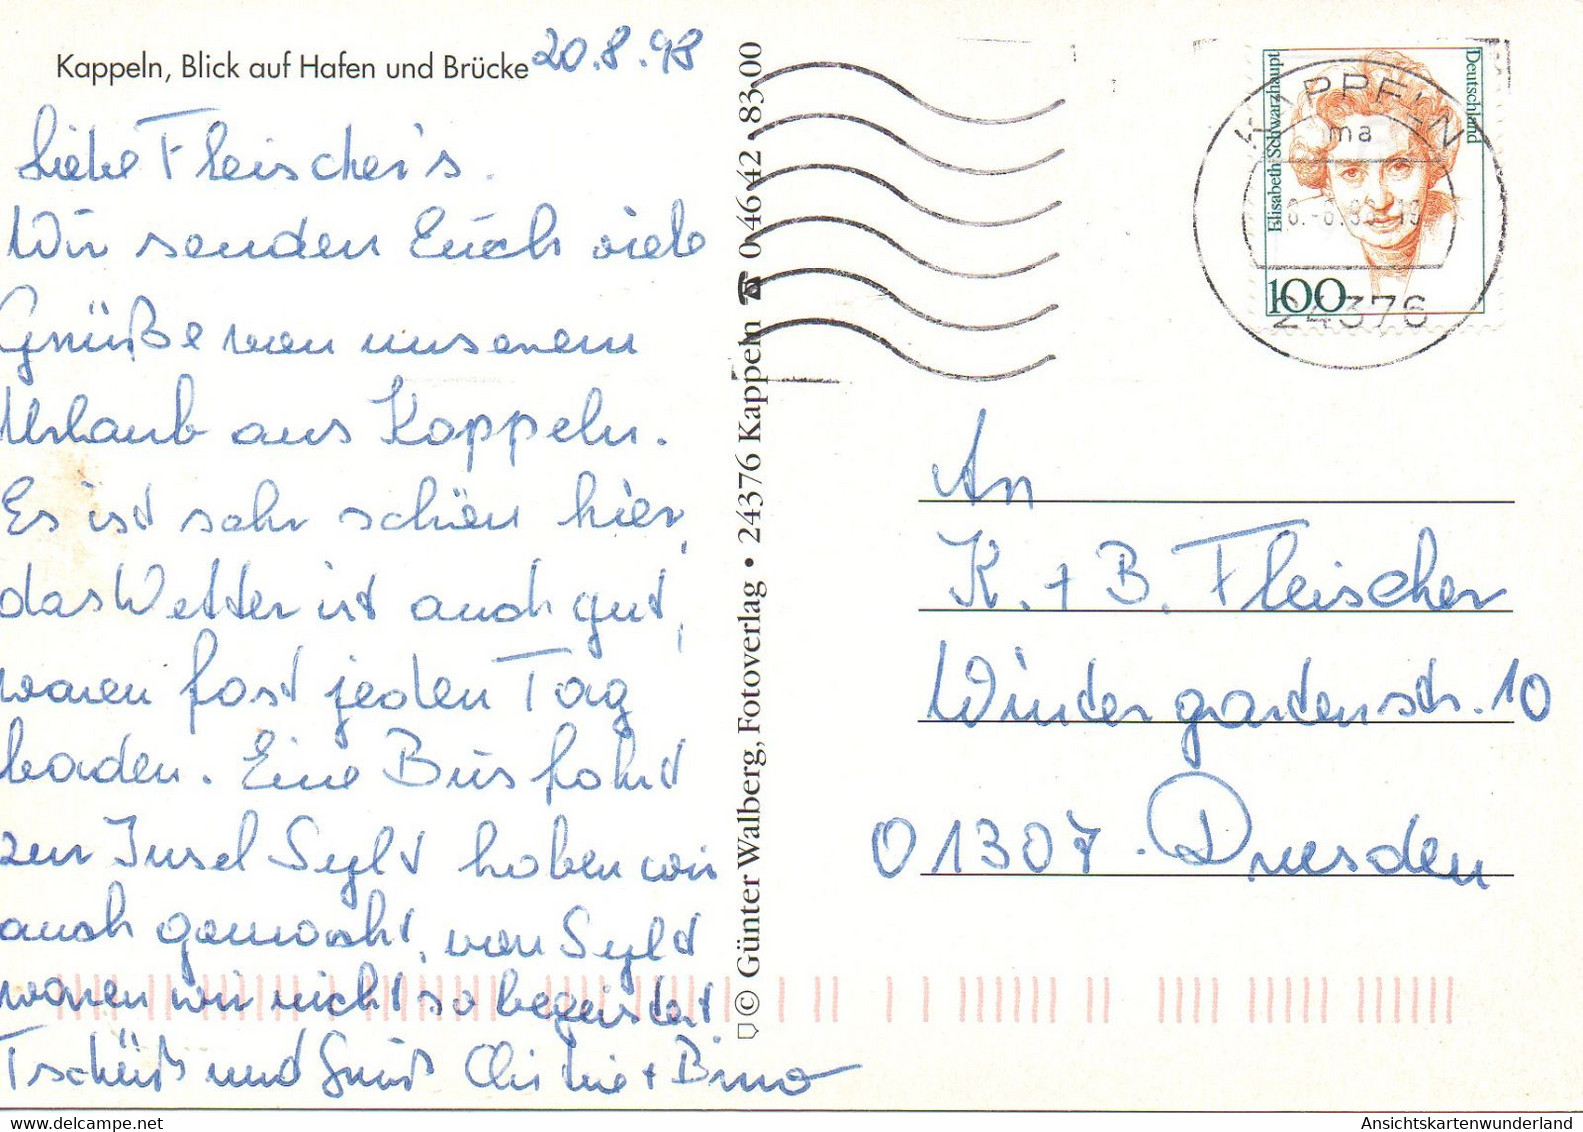 Kappeln, Blick auf Hafen und Brücke
20.8.98
Liebe Fleischer's.
Wir senden Euch viele
Grüße von unserem
Urlaub aus Kappeln.
Es ist sehr schön hier,
das Wetter ist auch gut,
waren fast jeden Tag
baden. Eine Busfahrt
zur Insel Sylt haben wir
auch gemacht, von Sylt
waren wir nicht so begeistert
Tschüß und Gruß + Bruno
© Günter Walberg, Fotoverlag • 24376 Kappeln ☎ 0 46 42 - 83 00
Deutschland
Elisabeth Schwarzhaupt
100
KAPPELN
ma
24376
An
K. + B. Fleischer
Wintergartenstr. 10
01307 Dresden
Ansichtskartenwunderland